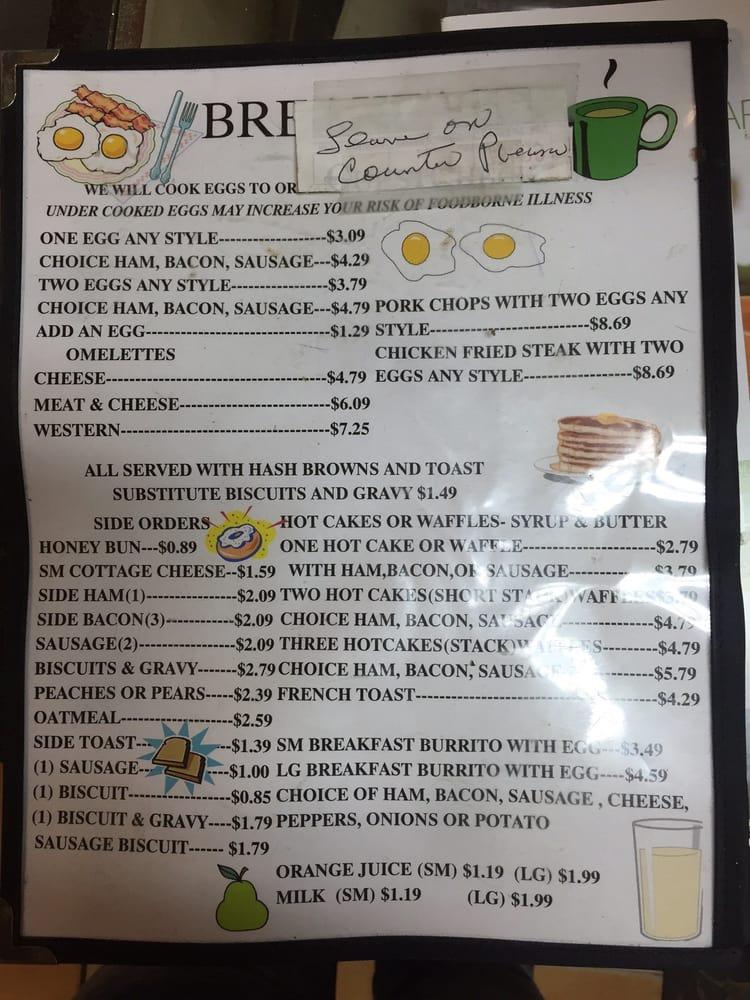 BRE
Leave on
Counter Please
WE WILL COOK EGGS TO OR
UNDER COOKED EGGS MAY INCREASE YOUR RISK OF FOODBORNE ILLNESS
ONE EGG ANY STYLE-------------------$3.09
CHOICE HAM, BACON, SAUSAGE---$4.29
TWO EGGS ANY STYLE-----------------$3.79
CHOICE HAM, BACON, SAUSAGE---$4.79
ADD AN EGG--------------------------------$1.29
OMELETTES
CHEESE---------------------------------------$4.79
MEAT & CHEESE---------------------------$6.09
WESTERN-------------------------------------$7.25
PORK CHOPS WITH TWO EGGS ANY
STYLE----------------------------$8.69
CHICKEN FRIED STEAK WITH TWO
EGGS ANY STYLE-------------------$8.69
ALL SERVED WITH HASH BROWNS AND TOAST
SUBSTITUTE BISCUITS AND GRAVY $1.49
SIDE ORDERS
HONEY BUN---$0.89
SM COTTAGE CHEESE--$1.59
SIDE HAM(1)--------------$2.09
SIDE BACON(3)------------$2.09
SAUSAGE(2)-----------------$2.09
BISCUITS & GRAVY-------$2.79
PEACHES OR PEARS-----$2.39
OATMEAL--------------------$2.59
SIDE TOAST-----$1.39
(1) SAUSAGE------$1.00
(1) BISCUIT------------------$0.85
(1) BISCUIT & GRAVY----$1.79
SAUSAGE BISCUIT------ $1.79
HOT CAKES OR WAFFLES- SYRUP & BUTTER
ONE HOT CAKE OR WAFFLE-----------------------$2.79
WITH HAM,BACON,OR SAUSAGE---------------$3.79
TWO HOT CAKES(SHORT STACK)WAFFLES$3.79
CHOICE HAM, BACON, SAUSAGE----------------$4.79
THREE HOTCAKES(STACK)WAFFLES---------$4.79
CHOICE HAM, BACON, SAUSAGE----------------$5.79
FRENCH TOAST------------------------------------------$4.29
SM BREAKFAST BURRITO WITH EGG---$3.49
LG BREAKFAST BURRITO WITH EGG----$4.59
CHOICE OF HAM, BACON, SAUSAGE , CHEESE,
PEPPERS, ONIONS OR POTATO
ORANGE JUICE (SM) $1.19 (LG) $1.99
MILK (SM) $1.19 (LG) $1.99